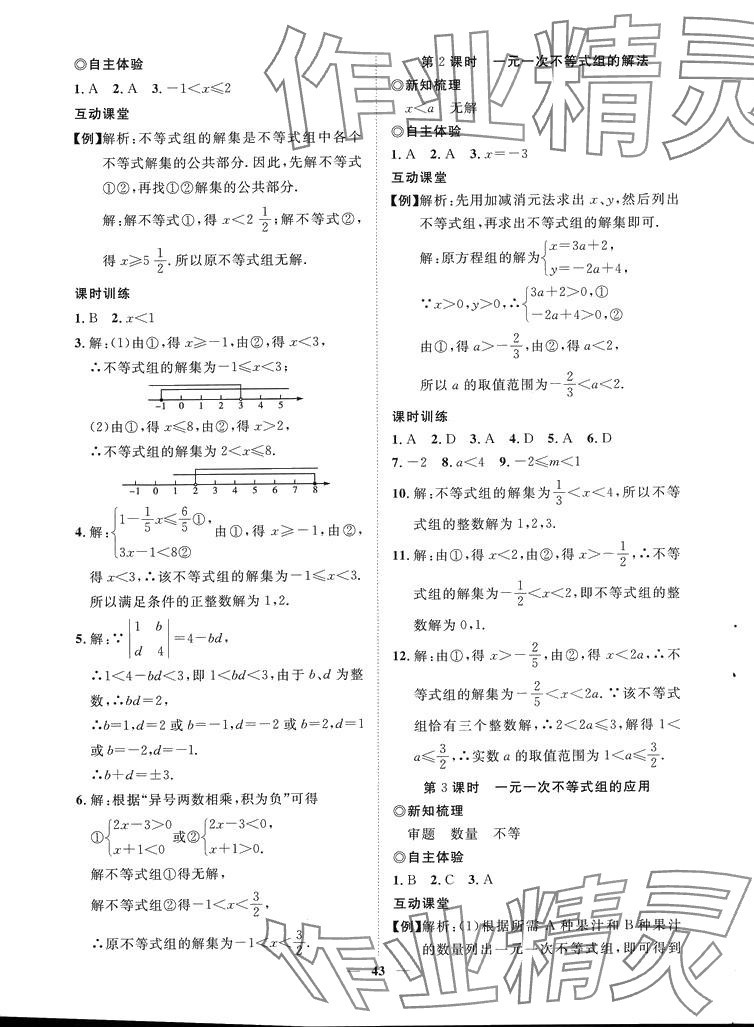 ◎自主体验
1. A 2. A 3. －1＜x≤2
互动课堂
【例】解析:不等式组的解集是不等式组中各个
不等式解集的公共部分.因此,先解不等式
①②,再找①②解集的公共部分.
解:解不等式①,得 x＜2 1/2;解不等式②,
得 x≥5 1/2.所以原不等式组无解.
课时训练
1. B 2. x＜1
3. 解:(1)由①,得 x≥－1,由②,得 x＜3,
∴不等式组的解集为－1≤x＜3;
-1 0 1 2 3 4 5
(2)由①,得 x≤8,由②,得 x＞2,
∴不等式组的解集为 2＜x≤8.
-1 0 1 2 3 4 5 6 7 8
4. 解:{1－1/5 x≤6/5①, 3x－1＜8② 由①,得 x≥－1,由②,
得 x＜3,∴该不等式组的解集为－1≤x＜3.
所以满足条件的正整数解为 1,2.
5. 解:∵|1 b; d 4|＝4－bd,
∴1＜4－bd＜3,即 1＜bd＜3,由于 b、d 为整
数,∴bd＝2,
∴b＝1,d＝2 或 b＝－1,d＝－2 或 b＝2,d＝1
或 b＝－2,d＝－1.
∴b＋d＝±3.
6. 解:根据“异号两数相乘,积为负”可得
①{2x－3＞0 x＋1＜0 或②{2x－3＜0, x＋1＞0.
解不等式组①得无解,
解不等式组②得－1＜x＜3/2,
∴原不等式组的解集为－1＜x＜3/2.
第 2 课时 一元一次不等式组的解法
◎新知梳理
x＜a 无解
◎自主体验
1. A 2. A 3. x＝－3
互动课堂
【例】解析:先用加减消元法求出 x、y,然后列出
不等式组,再求出不等式组的解集即可.
解:原方程组的解为{x＝3a＋2, y＝－2a＋4,
∵x＞0,y＞0,∴{3a＋2＞0,① －2a＋4＞0,②
由①,得 a＞－2/3,由②,得 a＜2,
所以 a 的取值范围为－2/3＜a＜2.
课时训练
1. A 2. D 3. A 4. D 5. A 6. D
7. －2 8. a＜4 9. －2≤m＜1
10. 解:不等式组的解集为 1/3＜x＜4,所以不等
式组的整数解为 1,2,3.
11. 解:由①,得 x＜2,由②,得 x＞－1/2,∴不等
式组的解集为－1/2＜x＜2,即不等式组的整
数解为 0,1.
12. 解:由①,得 x＞－2/5,由②,得 x＜2a,∴不
等式组的解集为－2/5＜x＜2a.∵该不等式
组恰有三个整数解,∴2＜2a≤3,解得 1＜
a≤3/2,∴实数 a 的取值范围为 1＜a≤3/2.
第 3 课时 一元一次不等式组的应用
◎新知梳理
审题 数量 不等
◎自主体验
1. B 2. C 3. A
互动课堂
【例】解析:(1)根据所需 A 种果汁和 B 种果汁
的数量列出一元一次不等式组,即可得到
43
作业精灵
作业精灵